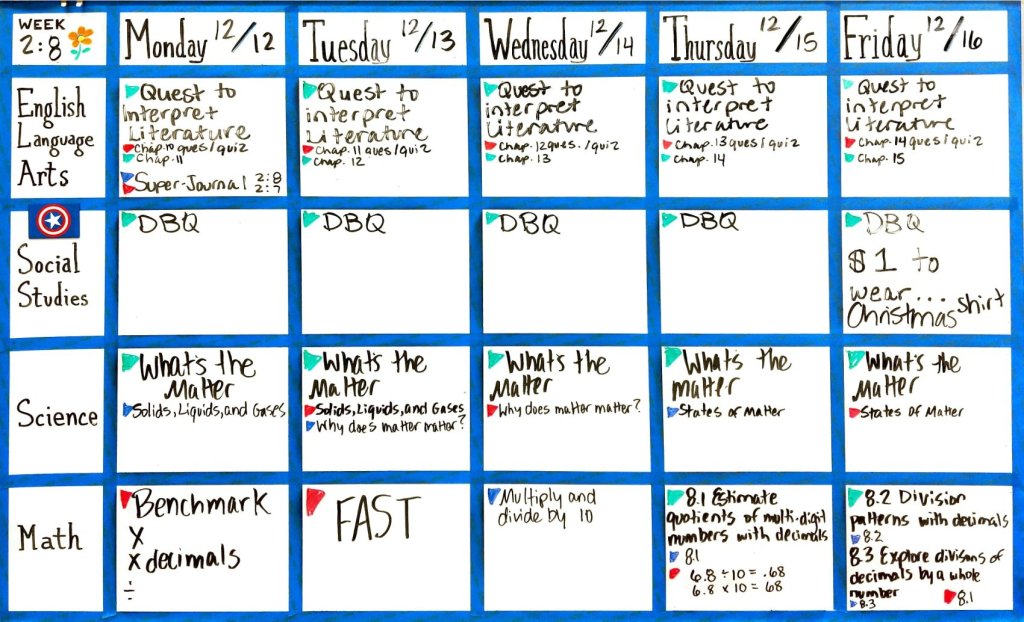 WEEK
2:8
Monday 12/12
Tuesday 12/13
Wednesday 12/14
Thursday 12/15
Friday 12/16
English
Language
Arts
Quest to
Interpret
Literature
Chap. 10 ques/quiz
Chap. 11
Super-Journal 2:8
2:7
Quest to
interpret
Literature
Chap. 11 ques/quiz
Chap. 12
Quest to
interpret
Literature
Chap. 12 ques./quiz
Chap. 13
Quest to
interpret
Literature
Chap. 13 ques/quiz
Chap. 14
Quest to
interpret
Literature
Chap. 14 ques/quiz
Chap. 15
Social
Studies
DBQ
DBQ
DBQ
DBQ
DBQ
$1 to
wear...
Christmas shirt
Science
What's the
Matter
Solids, Liquids, and Gases
What's the
Matter
Solids, Liquids, and Gases
Why does matter matter?
What's the
Matter
Why does matter matter?
What's the
matter
States of Matter
What's the
Matter
States of Matter
Math
Benchmark
x
x decimals
÷
FAST
Multiply and
divide by 10
8.1 Estimate
quotients of multi-digit
numbers with decimals
8.1
6.8 ÷ 10 = .68
6.8 x 10 = 68
8.2 Division
patterns with decimals
8.2
8.3 Explore divisons of
decimals by a whole
number
8.3
8.1